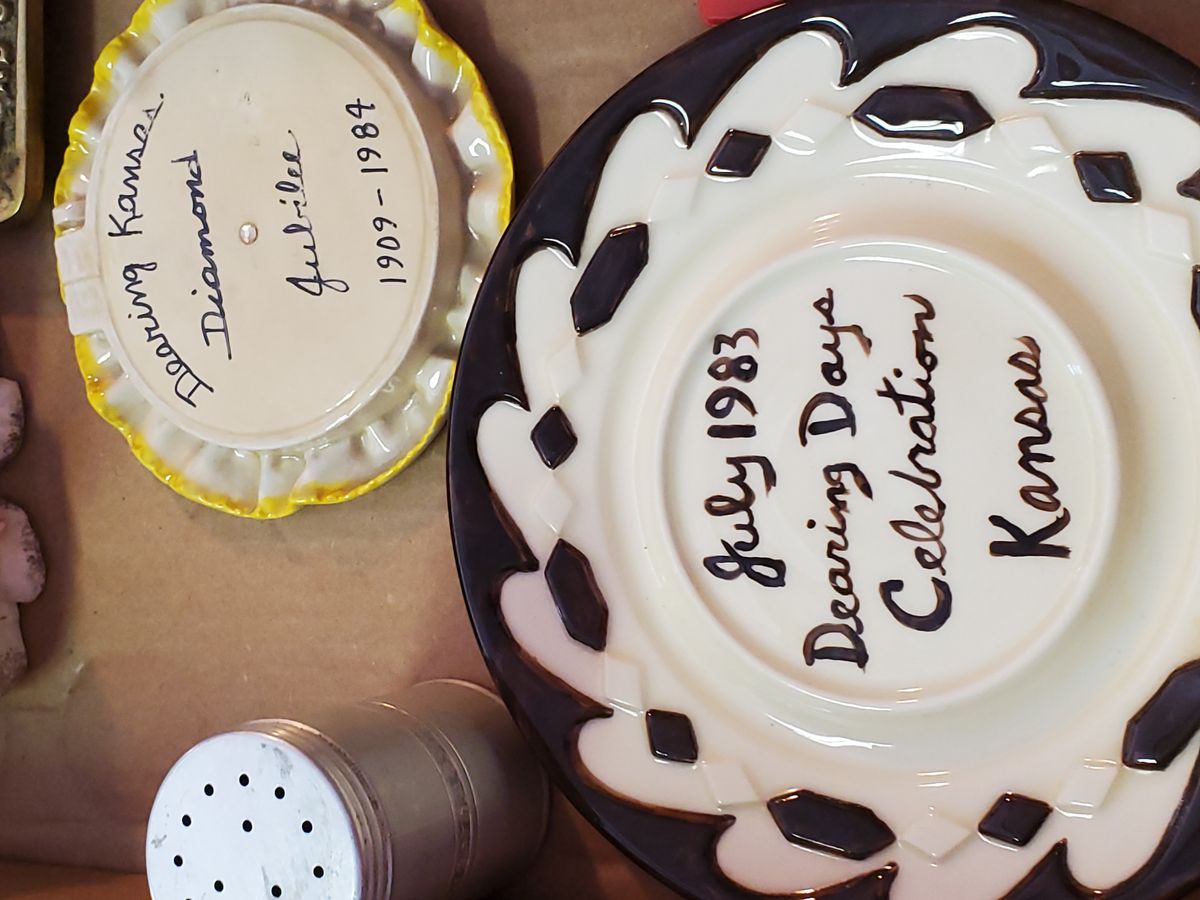 Dearing Kansas.
Diamond
Jubilee
1909-1984
July 1983
Dearing Days
Celebration
Kansas